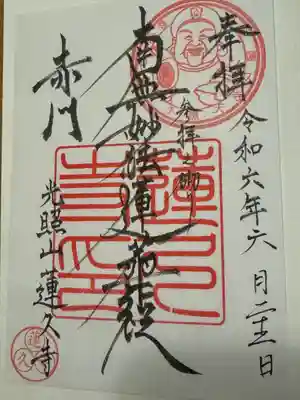 奉拝
令和六年六月 日
参拝之砌り
南無妙法蓮華経
赤門
光照山蓮久寺
蓮久